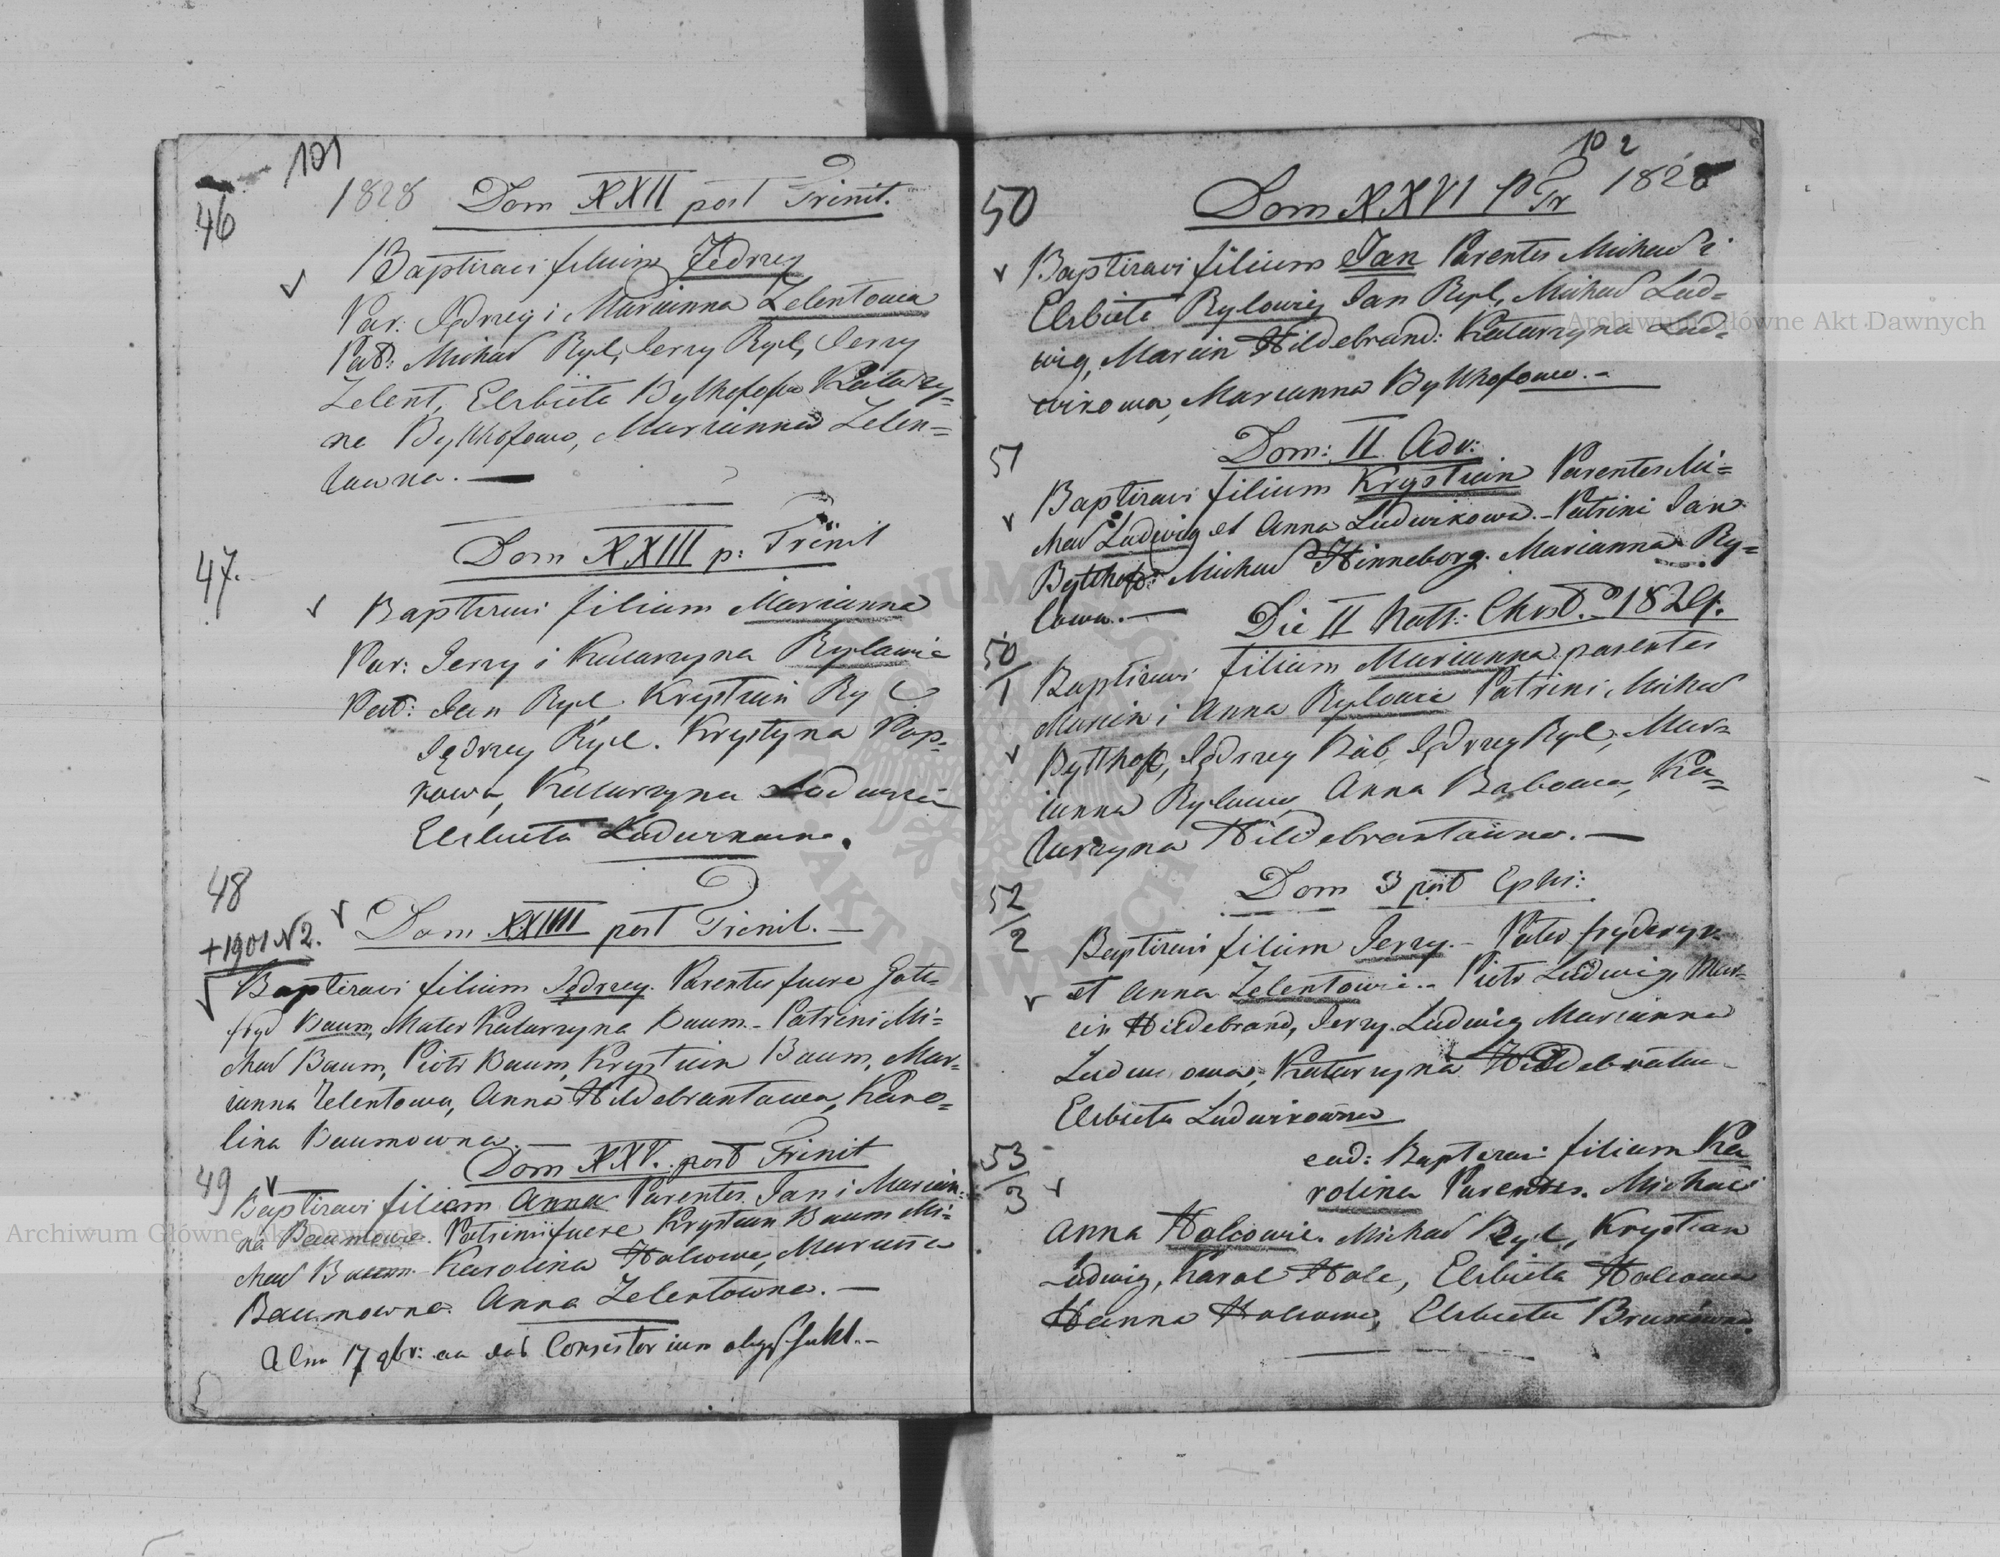 101
46
1828 Dom XXII post Trinit.
Baptizavi filium Jędrzey
Par: Jędrzey i Marianna Zelentowie
Pat: Michał Ryl, Jerzy Ryl, Jerzy
Zelent, Elżbieta Bytthofowa Katarzy=
na Bytthofowa, Marianna Zelen=
towna. —
47.
Dom XXIII p: Trinit
Baptizavi filiam Marianna
Par: Jerzy i Katarzyna Rylowie
Pat: Jan Ryl Krystian Ryl
Jędrzey Ryl. Krystyna Pop=
kowa, Katarzyna
Elżbieta Ludwikowna.
48
+1901 N2.
Dom XXIIII post Trinit. —
Baptizavi filium Jędrzey. Parentes fuere Gott=
fryd Baum, Mater Katarzyna Baum - Patrini Mi=
chał Baum, Piotr Baum, Krystian Baum, Mar=
ianna Zelentowa, Anna Hildebrantowa, Karo=
lina Baumowna. —
49
Dom XXV. post Trinit
Baptizavi filiam Anna Parentes Jan i Marian=
na Baumowie. Patrini fuere Krystian Baum Mi=
chał Baum. Karolina Holcowa, Marianna
Baumowna. Anna Zelentowna. —
17 9br: an das Consistorium abgeschukt. -
102
50
Dom XXVI p Tr 1828
Baptizavi filium Jan Parentes Michał i
Elżbieta Rylowie Jan Ryl, Michał Lud=
wig, Marcin Hildebrand: Katarzyna Lud=
wikowa, Marianna Bytthofowa. -
51
Dom: II Adv:
Baptizavi filium Krystian Parentes Mi=
chał Ludwig et Anna Ludwikowa. - Patrini Jan
Bytthof: Michał Hinneborg. Marianna Ry=
lowa. —
Die II Natt: Christ. 1829.
50/1
Baptizavi filiam Marianna parentes
Marcin i Anna Rylowie Patrini Michał
Bytthof, Jędrzey Bab, Jędrzey Ryl, Mar=
ianna Rylowa, Anna Babowa, Ka=
tarzyna Hildebrantowna. —
52/2
Dom 3 post Eph:
Baptizavi filium Jerzy. - Pater Fryderyk
et Anna Zelentowie. - Piotr Ludwig, Mar=
cin Hildebrand, Jerzy Ludwig Marianna
Ludwikowa, Katarzyna
Elżbieta Ludwikowna
53/3
ead: Baptizavi filiam Ka=
rolina Parentes. Michał i
Anna Holcowie. Michał Ryl, Krystian
Ludwig, Karol Holc, Elżbieta Holcowa
Hanna Holcowa, Elżbieta
Archiwum Główne Akt Dawnych
Archiwum Główne Akt Dawnych